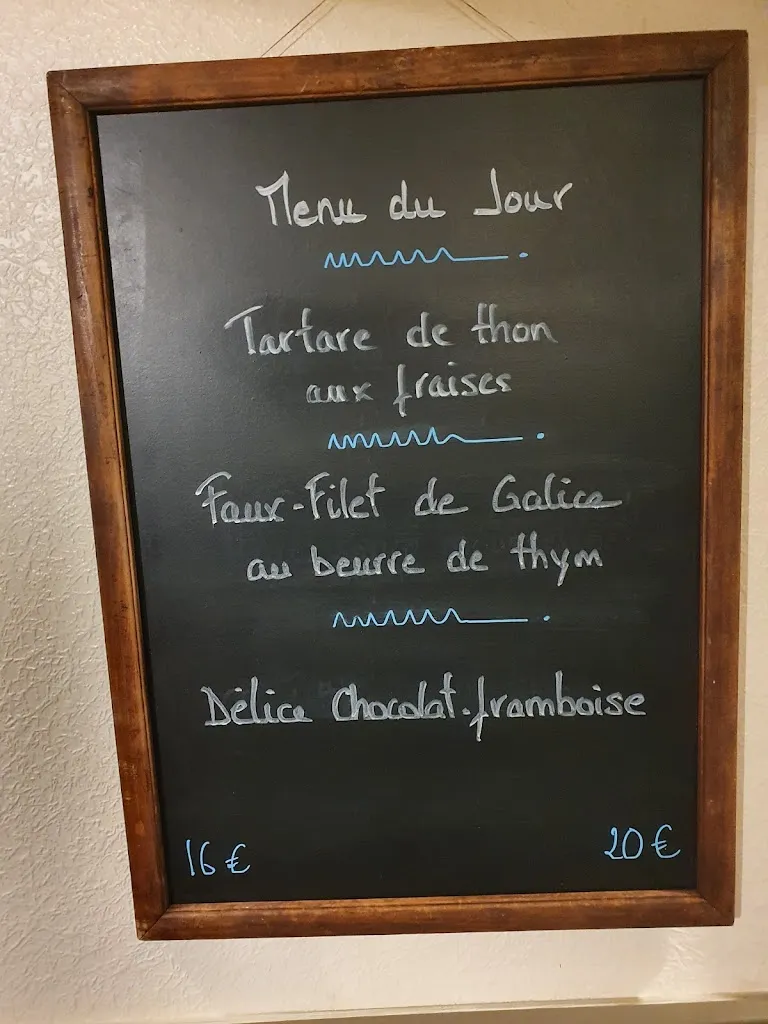 Menu du Jour
Tartare de thon
aux fraises
Faux-Filet de Galice
au beurre de thym
Délice Chocolat-framboise
16 €
20 €